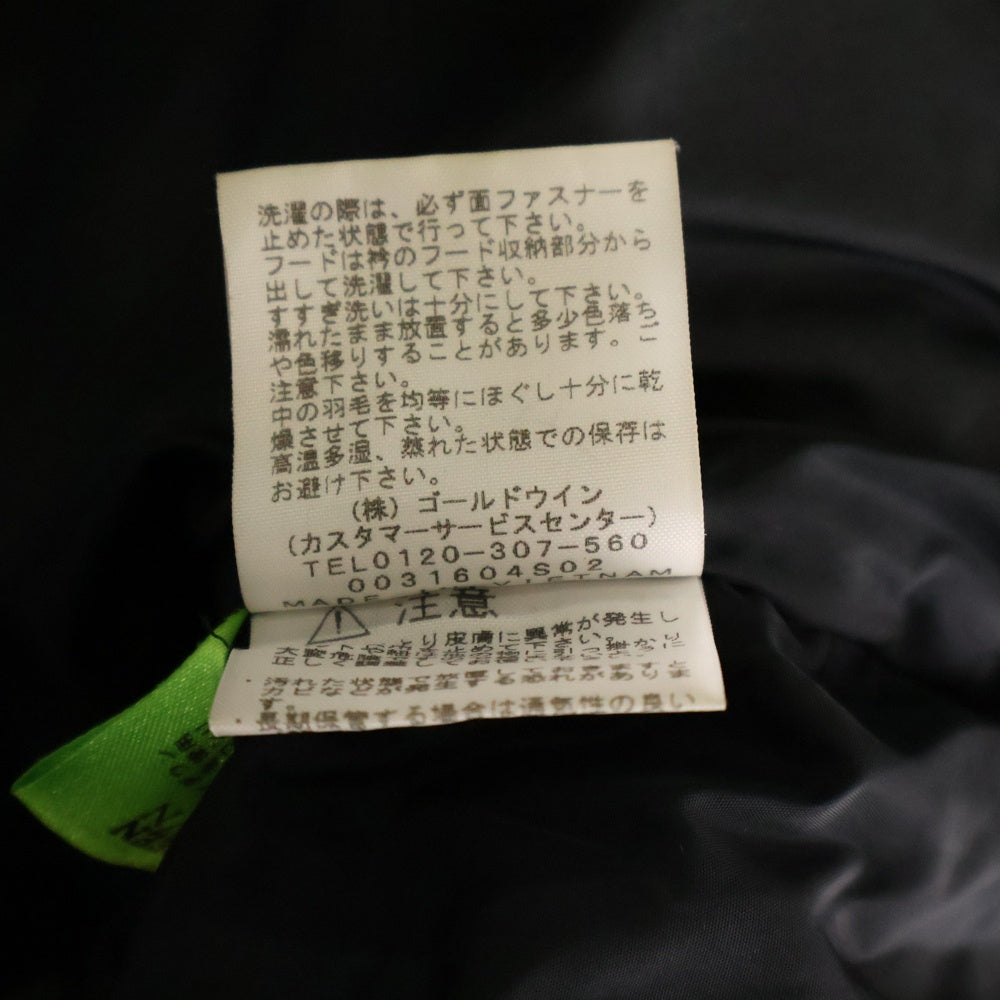 洗濯の際は、必ず面ファスナーを
止めた状態で行って下さい。
フードは衿のフード収納部分から
出して洗濯して下さい。
すすぎ洗いは十分にして下さい。
濡れたまま放置すると多少色落ち
や色移りすることがあります。ご
注意下さい。
中の羽毛を均等にほぐし十分に乾
燥させて下さい。
高温多湿、蒸れた状態での保存は
お避け下さい。
(株)ゴールドウイン
(カスタマーサービスセンター)
TEL0120-307-560
0031604S02
MADE VIETNAM
注意
皮膚に異常が発生し
す。
・長期保管する場合は通気性の良い